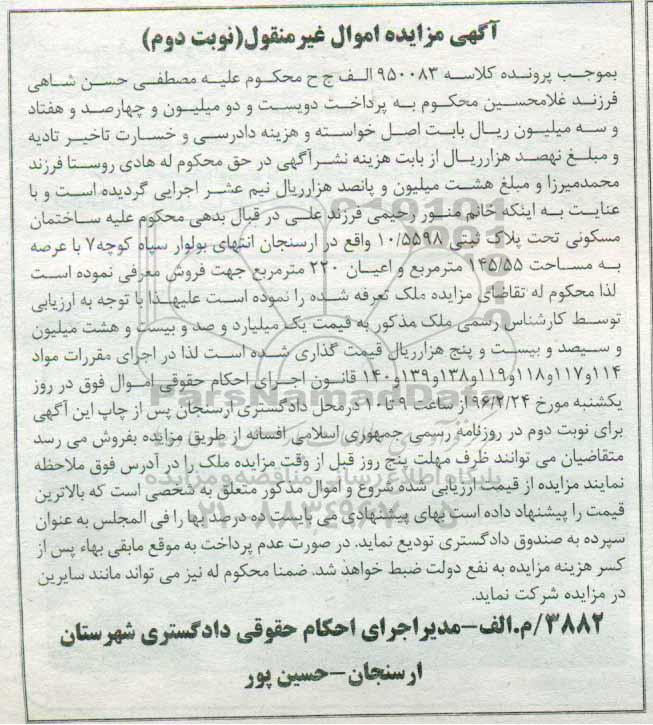 آگهی مزایده اموال غیرمنقول(نوبت دوم)
بموجب پرونده کلاسه ۹۵۰۰۸۳ الف ج ح محکوم علیه مصطفی حسن شاهی
فرزند غلامحسین محکوم به پرداخت دویست و دو میلیون و چهارصد و هفتاد
و سه میلیون ریال بابت اصل خواسته و هزینه دادرسی و خسارت تاخیر تادیه
و مبلغ نهصد هزارریال از بابت هزینه نشرآگهی در حق محکوم له هادی روستا فرزند
محمدمیرزا و مبلغ هشت میلیون و پانصد هزارریال نیم عشر اجرایی گردیده است و با
عنایت به اینکه خانم منور رحیمی فرزند علی در قبال بدهی محکوم علیه ساختمان
مسکونی تحت پلاک ثبتی ۱۰/۵۵۹۸ واقع در ارسنجان انتهای بولوار سپاه کوچه۷ با عرصه
به مساحت ۱۴۵/۵۵ مترمربع و اعیان ۲۲۰ مترمربع جهت فروش معرفی نموده است
لذا محکوم له تقاضای مزایده ملک تعرفه شده را نموده است علیهذا با توجه به ارزیابی
توسط کارشناس رسمی ملک مذکور به قیمت یک میلیارد و صد و بیست و هشت میلیون
و سیصد و بیست و پنج هزارریال قیمت گذاری شده است لذا در اجرای مقررات مواد
۱۱۴و۱۱۷و۱۱۸و۱۱۹و۱۳۸و۱۳۹و۱۴۰ قانون اجرای احکام حقوقی اموال فوق در روز
یکشنبه مورخ ۹۶/۲/۲۴از ساعت ۹ تا ۱۰ درمحل دادگستری ارسنجان پس از چاپ این آگهی
برای نوبت دوم در روزنامه رسمی جمهوری اسلامی افسانه از طریق مزایده بفروش می رسد
متقاضیان می توانند ظرف مهلت پنج روز قبل از وقت مزایده ملک را در آدرس فوق ملاحظه
نمایند مزایده از قیمت ارزیابی شده شروع و اموال مذکور متعلق به شخصی است که بالاترین
قیمت را پیشنهاد داده است بهای پیشنهادی می بایست ده درصد بها را فی المجلس به عنوان
سپرده به صندوق دادگستری تودیع نماید. در صورت عدم پرداخت به موقع مابقی بهاء پس از
کسر هزینه مزایده به نفع دولت ضبط خواهد شد. ضمنا محکوم له نیز می تواند مانند سایرین
در مزایده شرکت نماید.
۳۸۸۲/م.الف-مدیراجرای احکام حقوقی دادگستری شهرستان
ارسنجان-حسین پور
ParsNamadData
پایگاه اطلاع رسانی مناقصه و مزایده